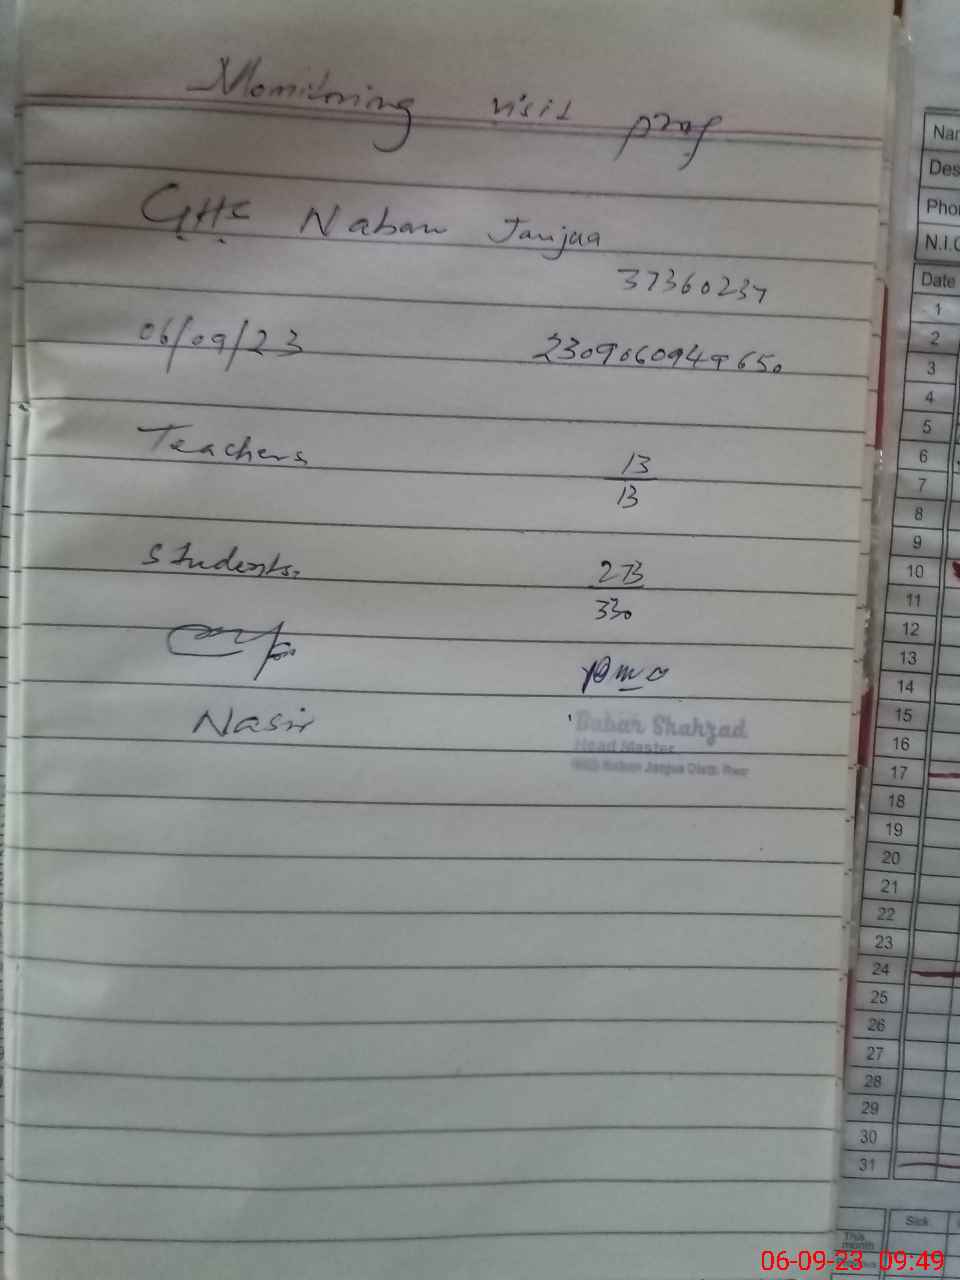 Monitoring visit prof
GHS Naban Janjua
37360237
06/09/23 2309060949650
Teachers 13
13
Students. 273
330
Nasir
Babar Shahzad
Head Master
Naban Janjua Distt.
Nar
Des
Pho
N.I.C
Date
1
2
3
4
5
6
7
8
9
10
11
12
13
14
15
16
17
18
19
20
21
22
23
24
25
26
27
28
29
30
31
Sick
This
month
06-09-23 09:49